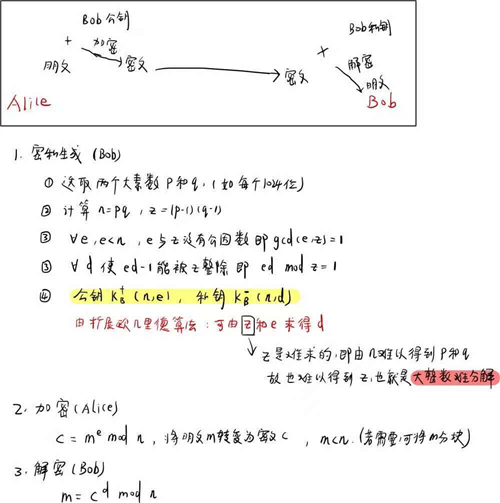 Bob公钥
+
加密
明文
密文
Alice
Bob私钥
+
解密
密文
明文
Bob
1. 密钥生成 (Bob)
① 选取两个大素数 p和q, (如每个1024位)
② 计算 n=pq , z=(p-1)(q-1)
③ ∀e , e<n , e与z没有公因数即 gcd(e,z)=1
③ ∀ d 使 ed-1能被z整除 即 ed mod z=1
④ 公钥 K_B^+ (n,e) , 私钥 K_B^- (n,d)
由扩展欧几里德算法 : 可由z和e求得d
z是难求的, 即由n难以得到p和q
故也难以得到z, 也就是大整数难分解
2. 加密 (Alice)
c = m^e mod n , 将明文m转变为密文c , m<n. (若需要, 可将m分块)
3. 解密 (Bob)
m = c^d mod n